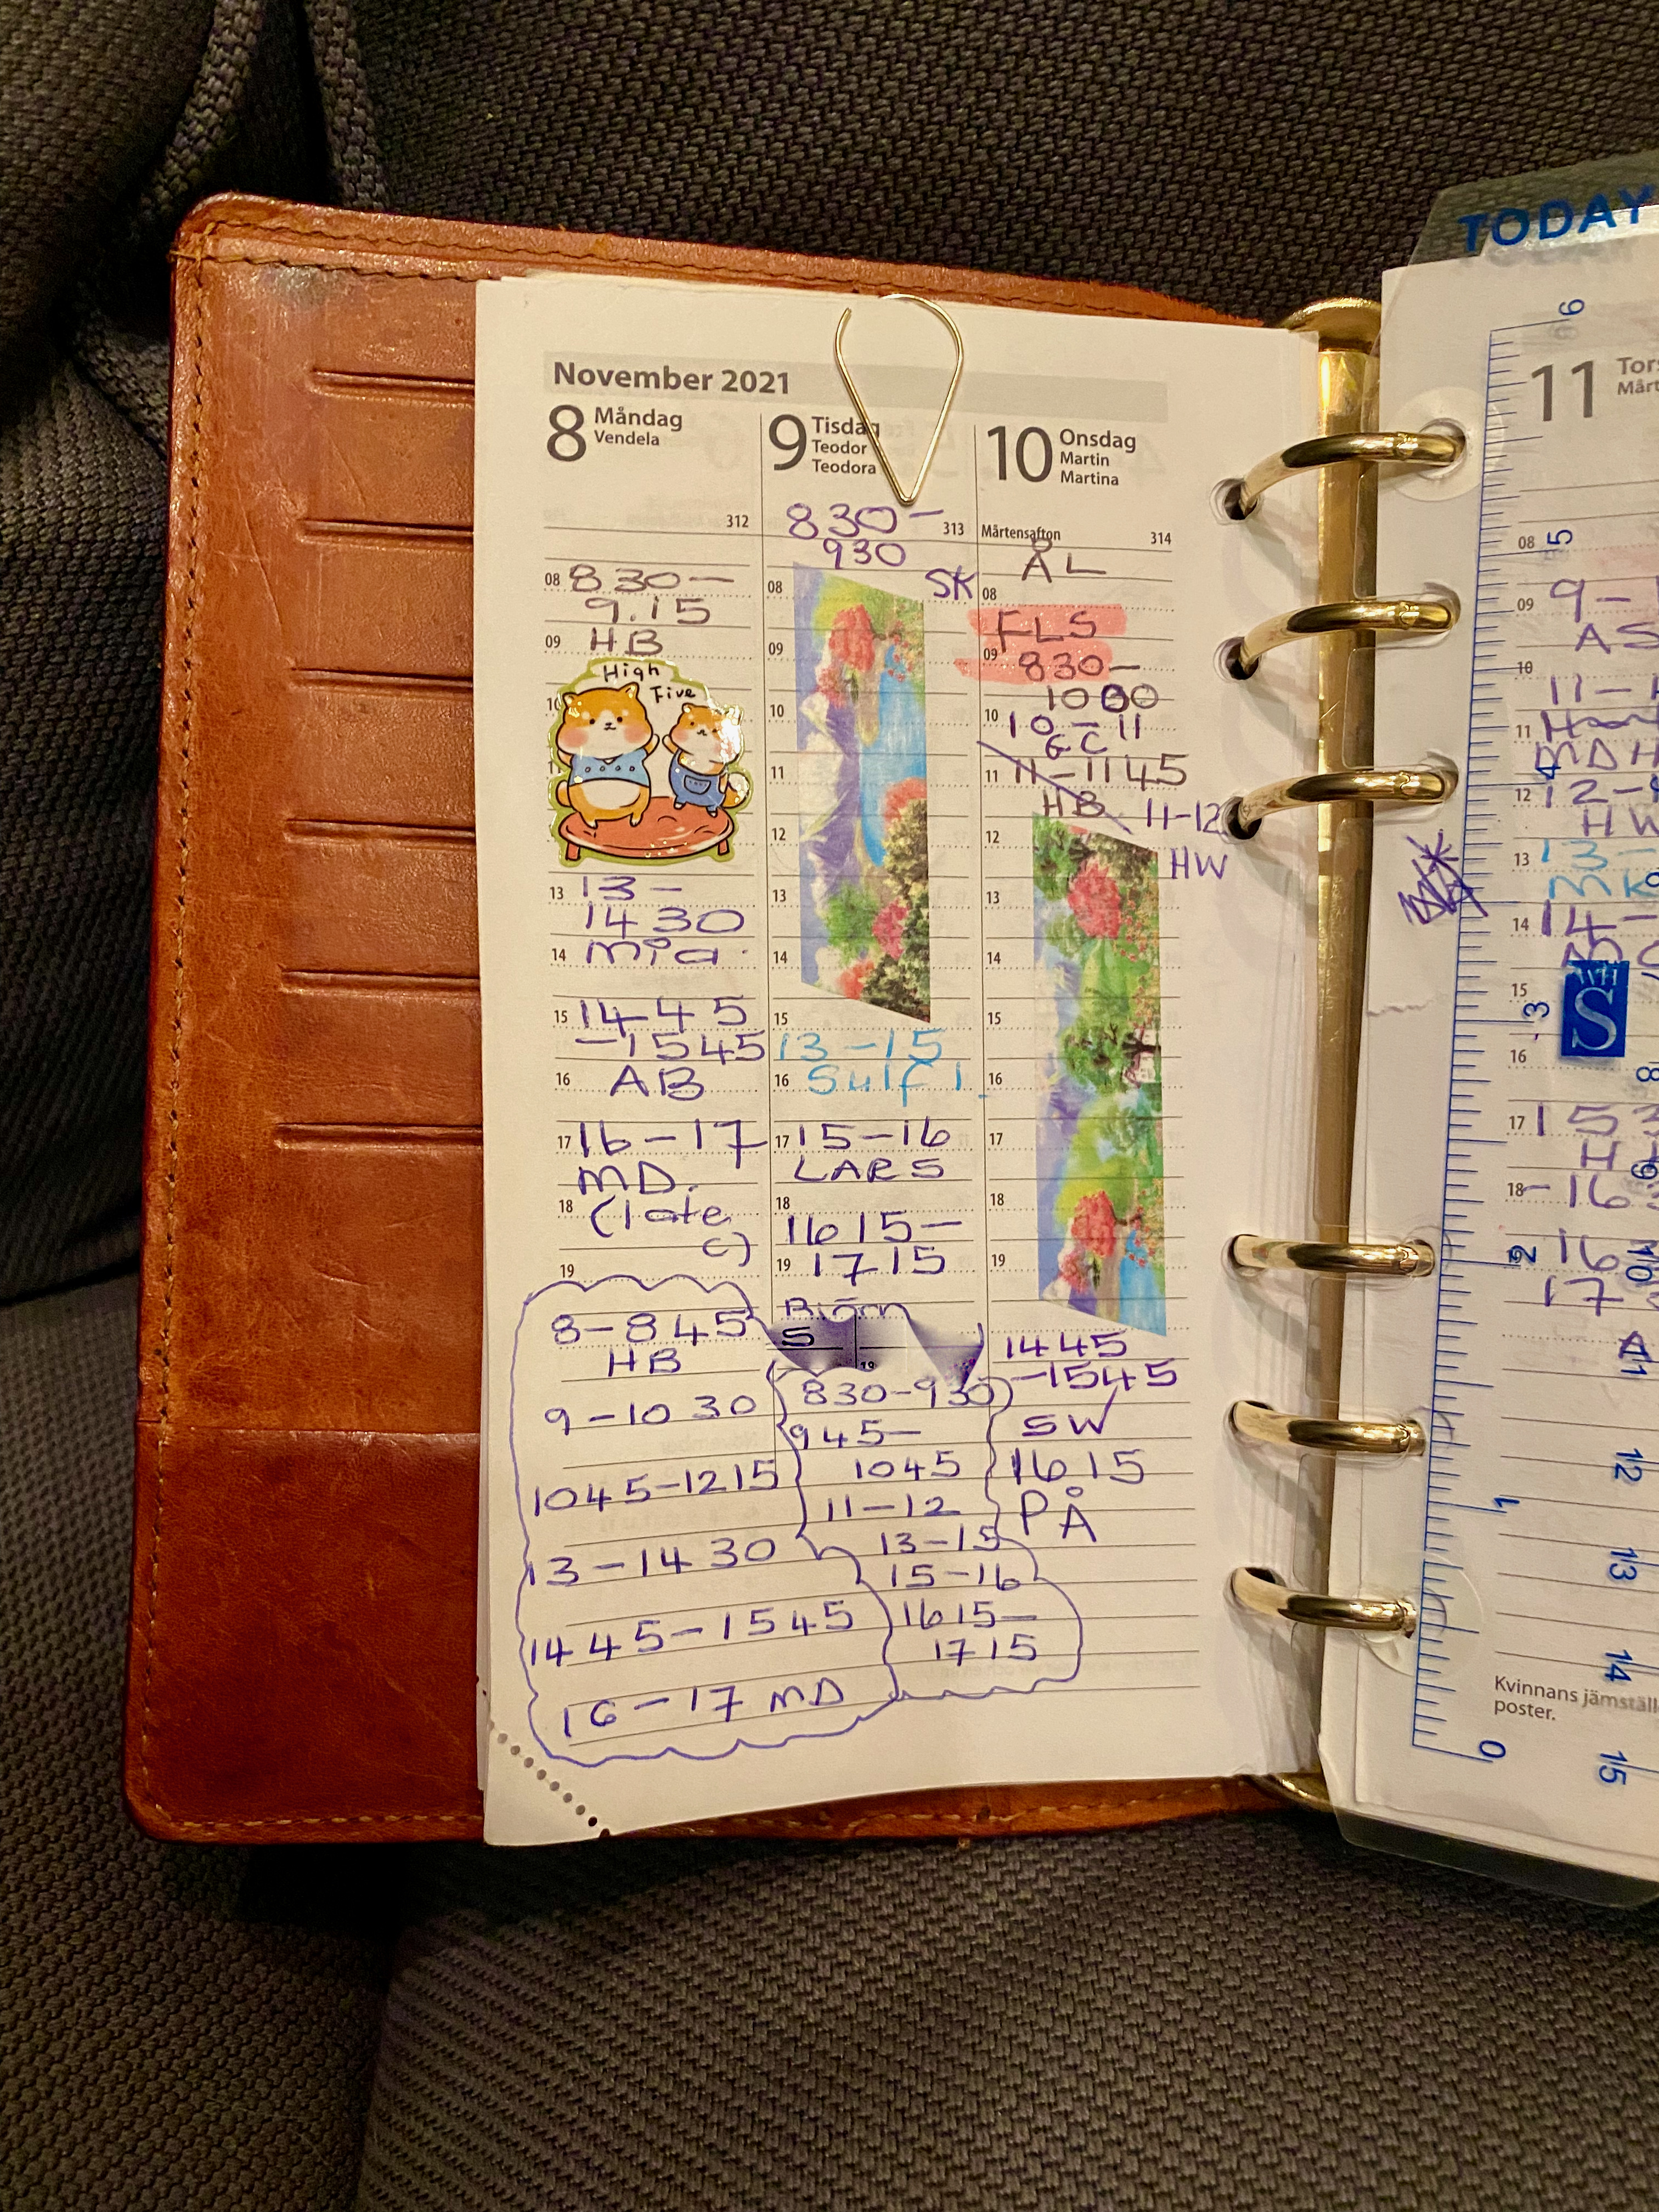 November 2021
8 Måndag
Vendela
312
08 830-
9.15
09 HB
High
Five
13 13-
1430
14 mia
15 1445
-1545
16 AB
17 16-17
MD.
18 (late
c)
19
8-845
HB
9-1030
1045-1215
13-1430
1445-1545
16-17 MD
9 Tisdag
Teodor
Teodora
830- 313
930
08 SK
09
10
11
12
13
14
15
13-15
16
17 15-16
LARS
18
1615-
19 1715
Björn
S
19
830-930
945-
1045
11-12
13-15
15-16
1615-
1715
10 Onsdag
Martin
Martina
Mårtensafton 314
ÅL
08
FLS
09 830-
1000
10 10-11
GC
11 11-1145
HB 11-12
12 HW
13
14
15
16
17
18
19
1445
-1545
SW
1615
PÅ
TODAY
11
08
09 9-
AS
10
11-
11
MDH
12 12-
HW
13 13-
MK
14 14-
15
WH
S
16
17 153
H
18 -16
16
17
Kvinnans
poster.
0
1
2
3
4
5
6
8
9
10
11
12
13
14
15